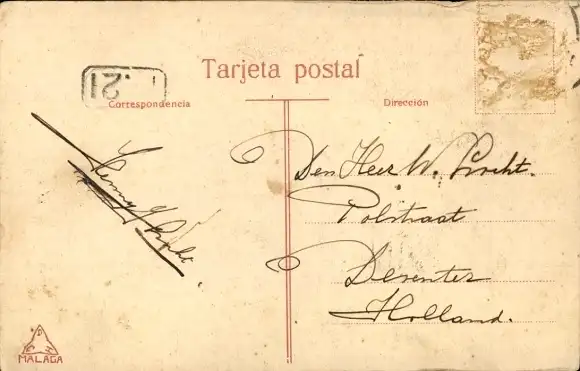 Tarjeta postal
Correspondencia
Dirección
Den Heer W.
Polstraat
Deventer
Holland.
MALAGA